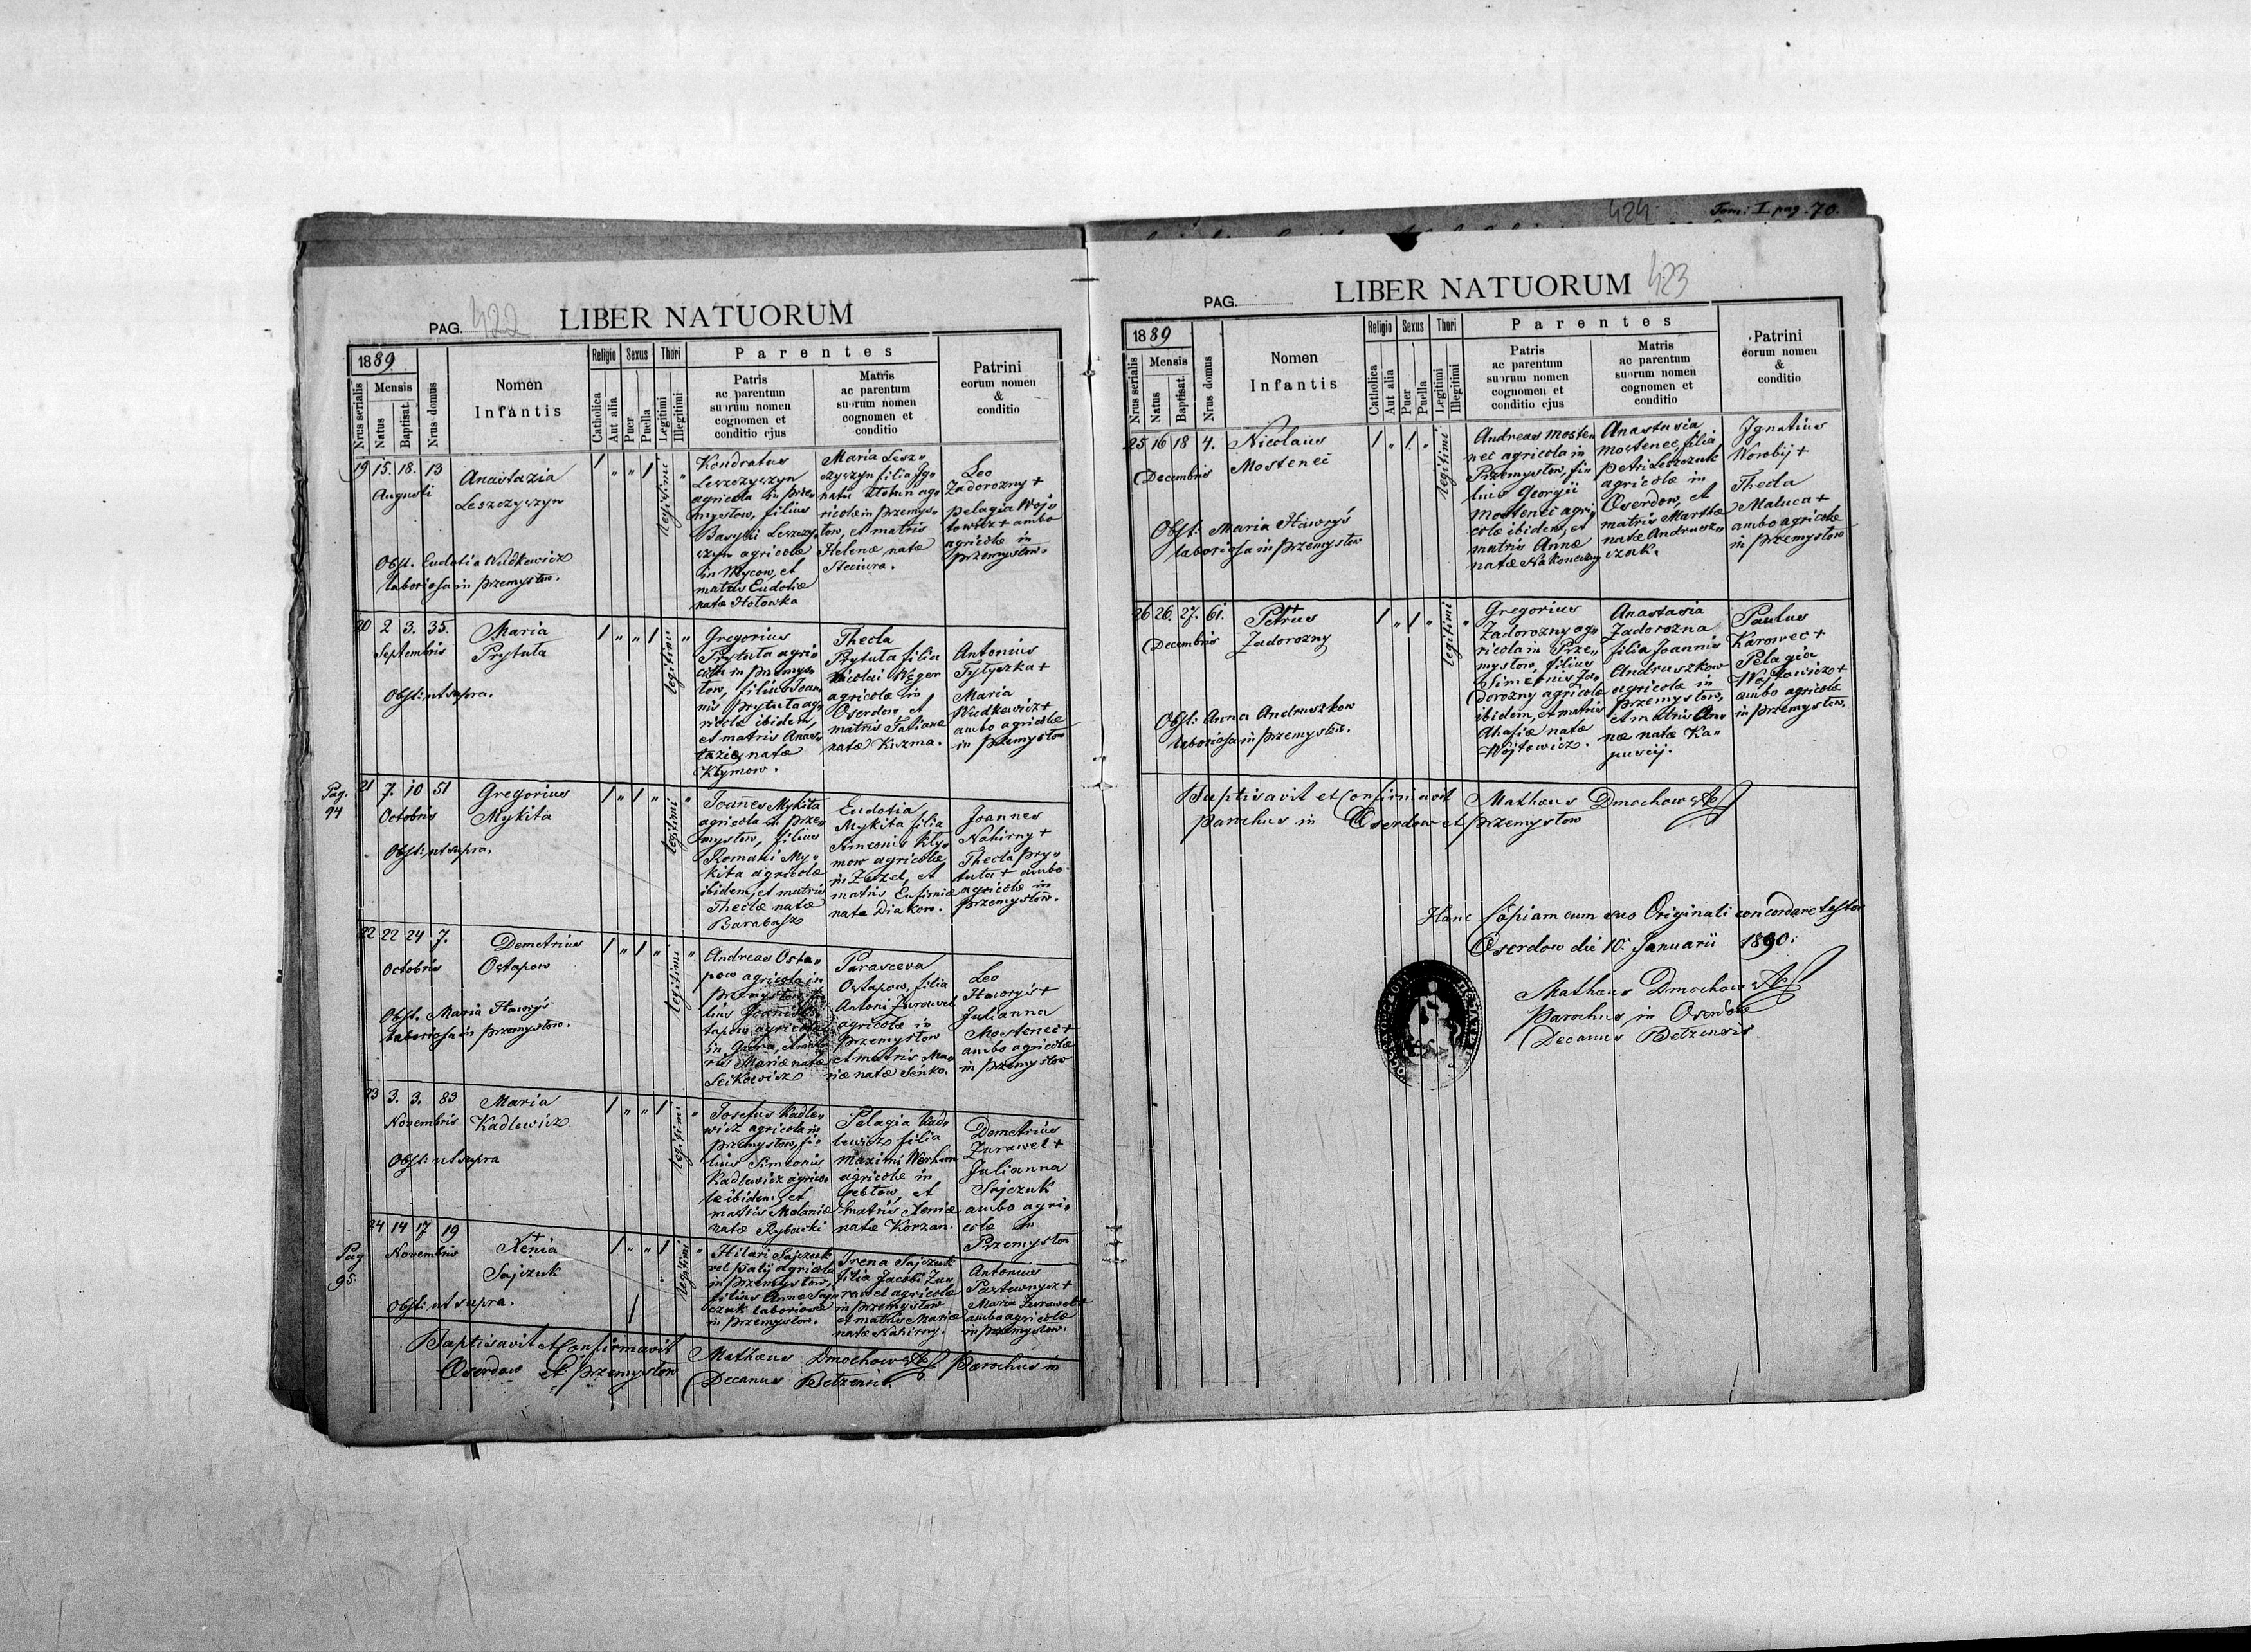 424
Tom: I. pag. 70.
PAG. 422
LIBER NATUORUM
1889
Nrus serialis
Mensis
Natus
Baptisat.
Nrus domus
Nomen
Infantis
Religio
Catholica
Aut alia
Sexus
Puer
Puella
Thori
Legitimi
Illegitimi
Parentes
Patris
ac parentum
suorum nomen
cognomen et
conditio ejus
Matris
ac parentum
suorum nomen
cognomen et
conditio
Patrini
eorum nomen
&
conditio
19 15. 18. 13
Augusti
Anastazia
Leszczyszyn
Obst. Eudotia Wudkewicz
laboriosa in Przemysłow.
1 " " 1 legitimi "
Kondratus
Leszczyszyn
agricola in Prze-
mysłow, filius
Basylii Leszczy-
szyn agricolæ
in Mycow, et
matris Eudotiæ
natæ Hołowka
Maria Lesz-
czyszyn filia Ig-
natii ag-
ricolæ in Przemys-
łow, et matris
Helenæ natæ
Steciura.
Leo
Zadorozny +
Pelagia Woj-
towicz + ambo
agricolæ in
Przemysłow.
20 2 3. 35.
Septembris
Maria
Prytuła
Obst: ut supra.
1 " " 1 legitimi "
Gregorius
Prytuła agri-
cola in Przemys-
łow, filius Joan-
nis Prytuła ag-
ricolæ ibidem,
et matris Anas-
taziæ natæ
Kłymow.
Thecla
Prytuła filia
Nicolai Węger
agricolæ in
Oserdow et
matris Tatianæ
natæ Kuzma.
Antonius
Tytyszka +
Maria
Wudkewicz +
ambo agricolæ
in Przemysłow
Pag.
94
21 7. 10 51
Octobris
Gregorius
Mykita
Obst: ut supra.
1 " 1 " legitimi "
Joannes Mykita
agricola in Prze-
mysłow, filius
Romani My-
kita agricolæ
ibidem, et matris
Theclæ natæ
Barabasz
Eudotia
Mykita filia
Simeonis Kły-
mow agricolæ
in Zużel, et
matris Eufimiæ
natæ Diakow.
Joannes
Nahirny +
Thecla Pry-
tuła + ambo
agricolæ in
Przemysłow.
22 22 24 7.
Octobris
Demetrius
Ostapow
Obst. Maria Hawryś
laboriosa in Przemysłow.
1 " 1 " legitimi "
Andreas Osta-
pow agricola in
Przemysłow, fi-
lius Joannis Os-
tapow agricolæ
in Góra, et mat-
ris Mariæ natæ
Seńkowicz
Parasceva
Ostapow, filia
Antoni Żurawel
agricolæ in
Przemysłow
et matris Ma-
riæ natæ Seńko.
Leo
Hawryś +
Julianna
Mostenec +
ambo agricolæ
in Przemysłow
23 3. 3. 83
Novembris
Maria
Kadlewicz
Obst: ut supra
1 " " 1 legitimi "
Josefus Kadle-
wicz agricola in
Przemysłow, fi-
lius Simeonis
Kadlewicz agrico-
læ ibidem, et
matris Melaniæ
natæ Rybacki
Pelagia Kad-
lewicz filia
Maximi Werhun
agricolæ in
Chebłow, et
matris Xeniæ
natæ Korzan.
Demetrius
Żurawel +
Julianna
Sajczuk
ambo agri-
colæ in
Przemysłow
Pag
95.
24 14 17 19
Novembris
+
Xenia
Sajczuk
Obst: ut supra.
1 " " 1 legitimi "
Hilari Sajczuk
vel Palij agricola
in Przemysłow,
filius Annæ Saj-
czuk laboriosæ
in Przemysłow.
Irena Sajczuk
filia Jacobi Żu-
rawel agricolæ
in Przemysłow
et matris Mariæ
natæ Nahirny.
Antonius
Pastewnycz +
Maria Żurawel +
ambo agricolæ
in Przemysłow.
Baptisavit et Confirmavit Mathæus Dmochowski Parochus in
Oserdow et Przemysłow Decanus Bełzensis.
PAG.
LIBER NATUORUM 423
1889
Nrus serialis
Mensis
Natus
Baptisat.
Nrus domus
Nomen
Infantis
Religio
Catholica
Aut alia
Sexus
Puer
Puella
Thori
Legitimi
Illegitimi
Parentes
Patris
ac parentum
suorum nomen
cognomen et
conditio ejus
Matris
ac parentum
suorum nomen
cognomen et
conditio
Patrini
eorum nomen
&
conditio
25 16 18 4.
Decembris
Nicolaus
Mostenec
Obst: Maria Hawryś
laboriosa in Przemysłow
1 " 1. " legitimi
Andreas Moste-
nec agricola in
Przemysłow, fi-
lius Georgii
Mostenec agri-
colæ ibidem, et
matris Annæ
natæ Nakoneczny
Anastasia
Mostenec filia
Petri Leszczuk
agricolæ in
Oserdow, et
matris Marthæ
natæ Andrusz-
czak.
Ignatius
Worobij +
Thecla
Maluca +
ambo agricolæ
in Przemysłow
26 26. 27. 61.
Decembris
+
Petrus
Zadorozny
Obst: Anna Andruszkow
laboriosa in Przemysłow.
1 " 1 " legitimi "
Gregorius
Zadorozny ag-
ricola in Prze-
mysłow, filius
Simeonis Za-
dorozny agricolæ
ibidem, et matris
Ahafiæ natæ
Wojtowicz.
Anastasia
Zadorozna
filia Joannis
Andruszkow
agricolæ in
Przemysłow,
et matris An-
næ natæ Ka-
puscij.
Paulus
Karowec +
Pelagia
Wojtowicz +
ambo agricolæ
in Przemysłow.
Baptisavit et Confirmavit Mathæus Dmochowski
Parochus in Oserdow et Przemysłow
Hanc Copiam cum suo Originali concordare testor
Oserdow die 10. Januarii 1890.
Mathæus Dmochowski
Parochus in Oserdow
Decanus Bełzensis